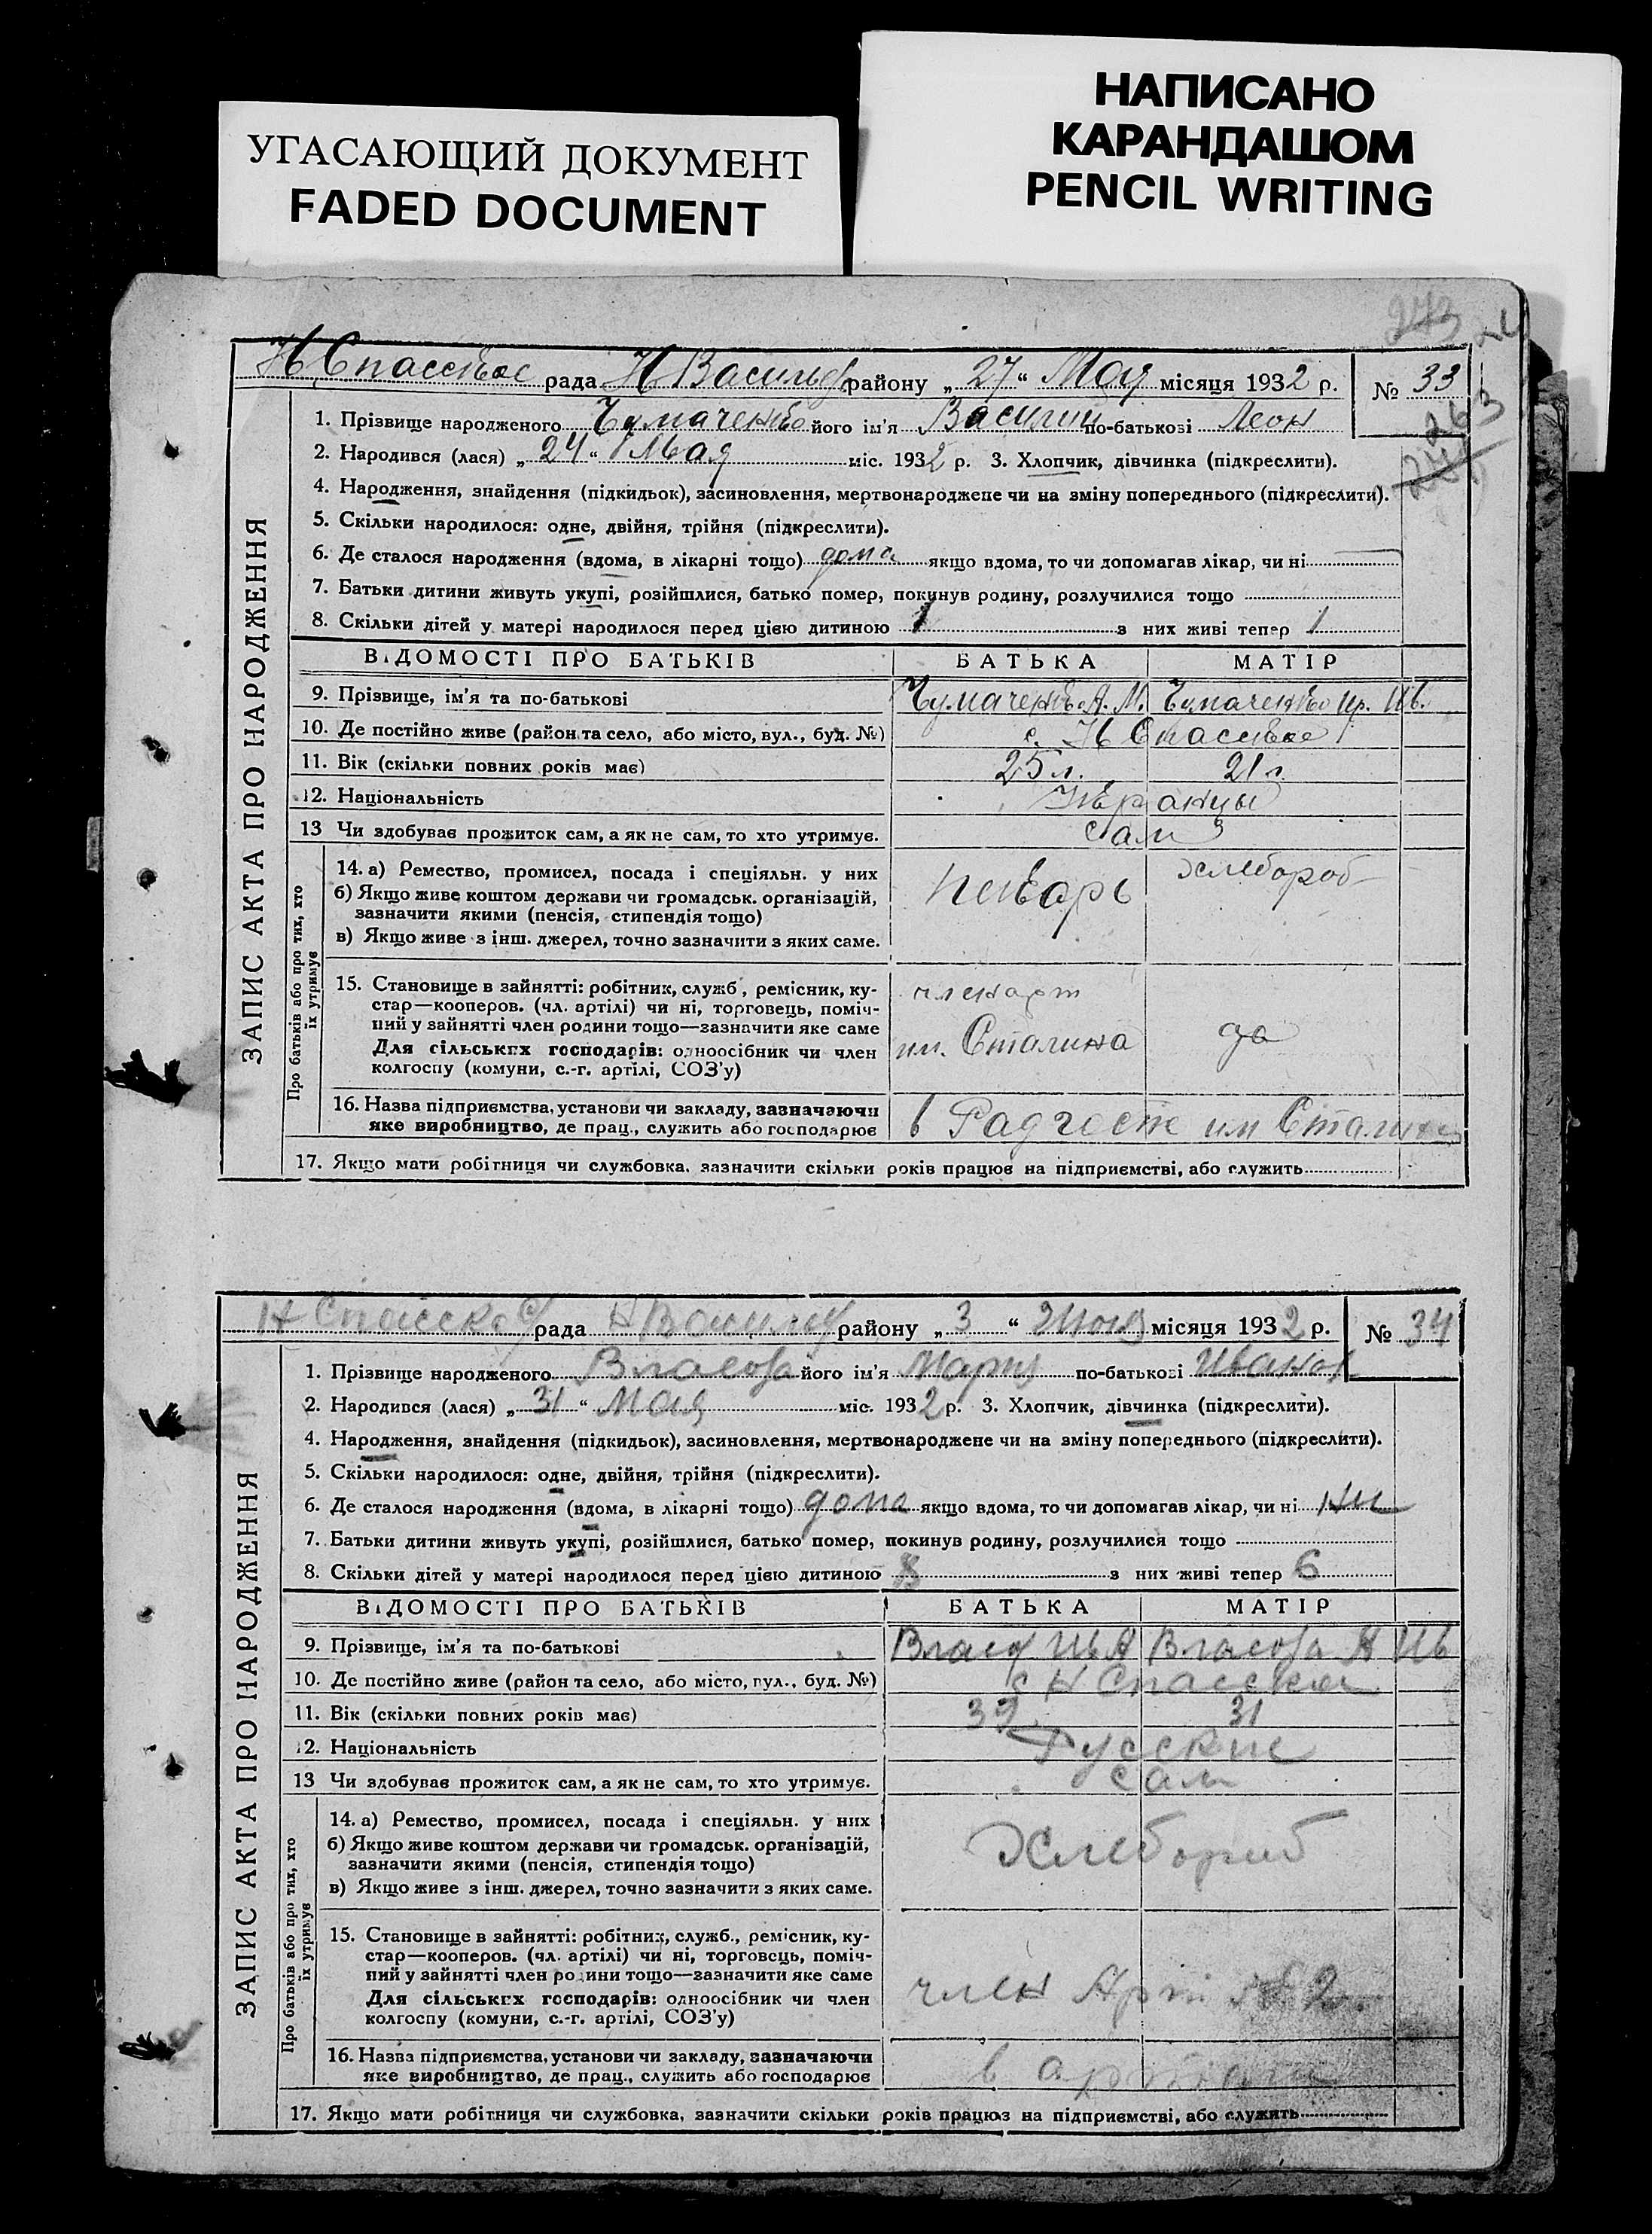 УГАСАЮЩИЙ ДОКУМЕНТ
FADED DOCUMENT
НАПИСАНО
КАРАНДАШОМ
PENCIL WRITING
273
263
Н Спасское рада Н Васильев району „ 27 “ Мая місяця 1932 р. № 33
ЗАПИС АКТА ПРО НАРОДЖЕННЯ
1. Прізвище народженого Чумаченко його ім'я Василий по-батькові Леон
2. Народився (лася) „ 24 “ Мая міс. 1932 р. 3. Хлопчик, дівчинка (підкреслити).
4. Народження, знайдення (підкидьок), засиновлення, мертвонароджене чи на зміну попереднього (підкреслити).
5. Скільки народилося: одне, двійня, трійня (підкреслити).
6. Де сталося народження (вдома, в лікарні тощо) дома якщо вдома, то чи допомагав лікар, чи ні
7. Батьки дитини живуть укупі, розійшлися, батько помер, покинув родину, розлучилися тощо
8. Скільки дітей у матері народилося перед цією дитиною 1 з них живі тепер 1
ВІДОМОСТІ ПРО БАТЬКІВ БАТЬКА МАТІР
9. Прізвище, ім'я та по-батькові Чумаченко М. Чумаченко Ир. Ив.
10. Де постійно живе (район та село, або місто, вул., буд. №) с. Н Спасское
11. Вік (скільки повних років має) 25 л. 21 л
12. Національність Укранцы
13 Чи здобуває прожиток сам, а як не сам, то хто утримує. сам
Про батьків або про тих, хто їх утримує
14. а) Ремество, промисел, посада і спеціяльн. у них
б) Якщо живе коштом держави чи громадськ. організацій,
зазначити якими (пенсія, стипендія тощо)
в) Якщо живе з інш. джерел, точно зазначити з яких саме.
пекарь хлебороб
15. Становище в зайнятті: робітник, служб., ремісник, ку-
стар—кооперов. (чл. артілі) чи ні, торговець, поміч-
ний у зайнятті член родини тощо—зазначити яке саме
Для сільських господарів: одноосібник чи член
колгоспу (комуни, с.-г. артілі, СОЗ'у)
член арт
им. Сталина да
16. Назва підприємства, установи чи закладу, зазначаючи
яке виробництво, де прац., служить або господарює
в Радгоспе им Сталина
17. Якщо мати робітниця чи службовка, зазначити скільки років працює на підприємстві, або служить
Н Спасской рада Н Василев району „ 3 “ Июня місяця 1932 р. № 34
ЗАПИС АКТА ПРО НАРОДЖЕННЯ
1. Прізвище народженого Власова його ім'я Мария по-батькові Иванов
2. Народився (лася) „ 31 “ Мая міс. 1932 р. 3. Хлопчик, дівчинка (підкреслити).
4. Народження, знайдення (підкидьок), засиновлення, мертвонароджене чи на зміну попереднього (підкреслити).
5. Скільки народилося: одне, двійня, трійня (підкреслити).
6. Де сталося народження (вдома, в лікарні тощо) дома якщо вдома, то чи допомагав лікар, чи ні ни
7. Батьки дитини живуть укупі, розійшлися, батько помер, покинув родину, розлучилися тощо
8. Скільки дітей у матері народилося перед цією дитиною 8 з них живі тепер 6
ВІДОМОСТІ ПРО БАТЬКІВ БАТЬКА МАТІР
9. Прізвище, ім'я та по-батькові Власов Ив А Власова А Ив
10. Де постійно живе (район та село, або місто, вул., буд. №) с Н Спасское
11. Вік (скільки повних років має) 39 31
12. Національність Русские
13 Чи здобуває прожиток сам, а як не сам, то хто утримує. сам
Про батьків або про тих, хто їх утримує
14. а) Ремество, промисел, посада і спеціяльн. у них
б) Якщо живе коштом держави чи громадськ. організацій,
зазначити якими (пенсія, стипендія тощо)
в) Якщо живе з інш. джерел, точно зазначити з яких саме.
Хлебороб
15. Становище в зайнятті: робітник, служб., ремісник, ку-
стар—кооперов. (чл. артілі) чи ні, торговець, поміч-
ний у зайнятті член родини тощо—зазначити яке саме
Для сільських господарів: одноосібник чи член
колгоспу (комуни, с.-г. артілі, СОЗ'у)
член Арт № 2
16. Назва підприємства, установи чи закладу, зазначаючи
яке виробництво, де прац., служить або господарює
в артели
17. Якщо мати робітниця чи службовка, зазначити скільки років працює на підприємстві, або служить